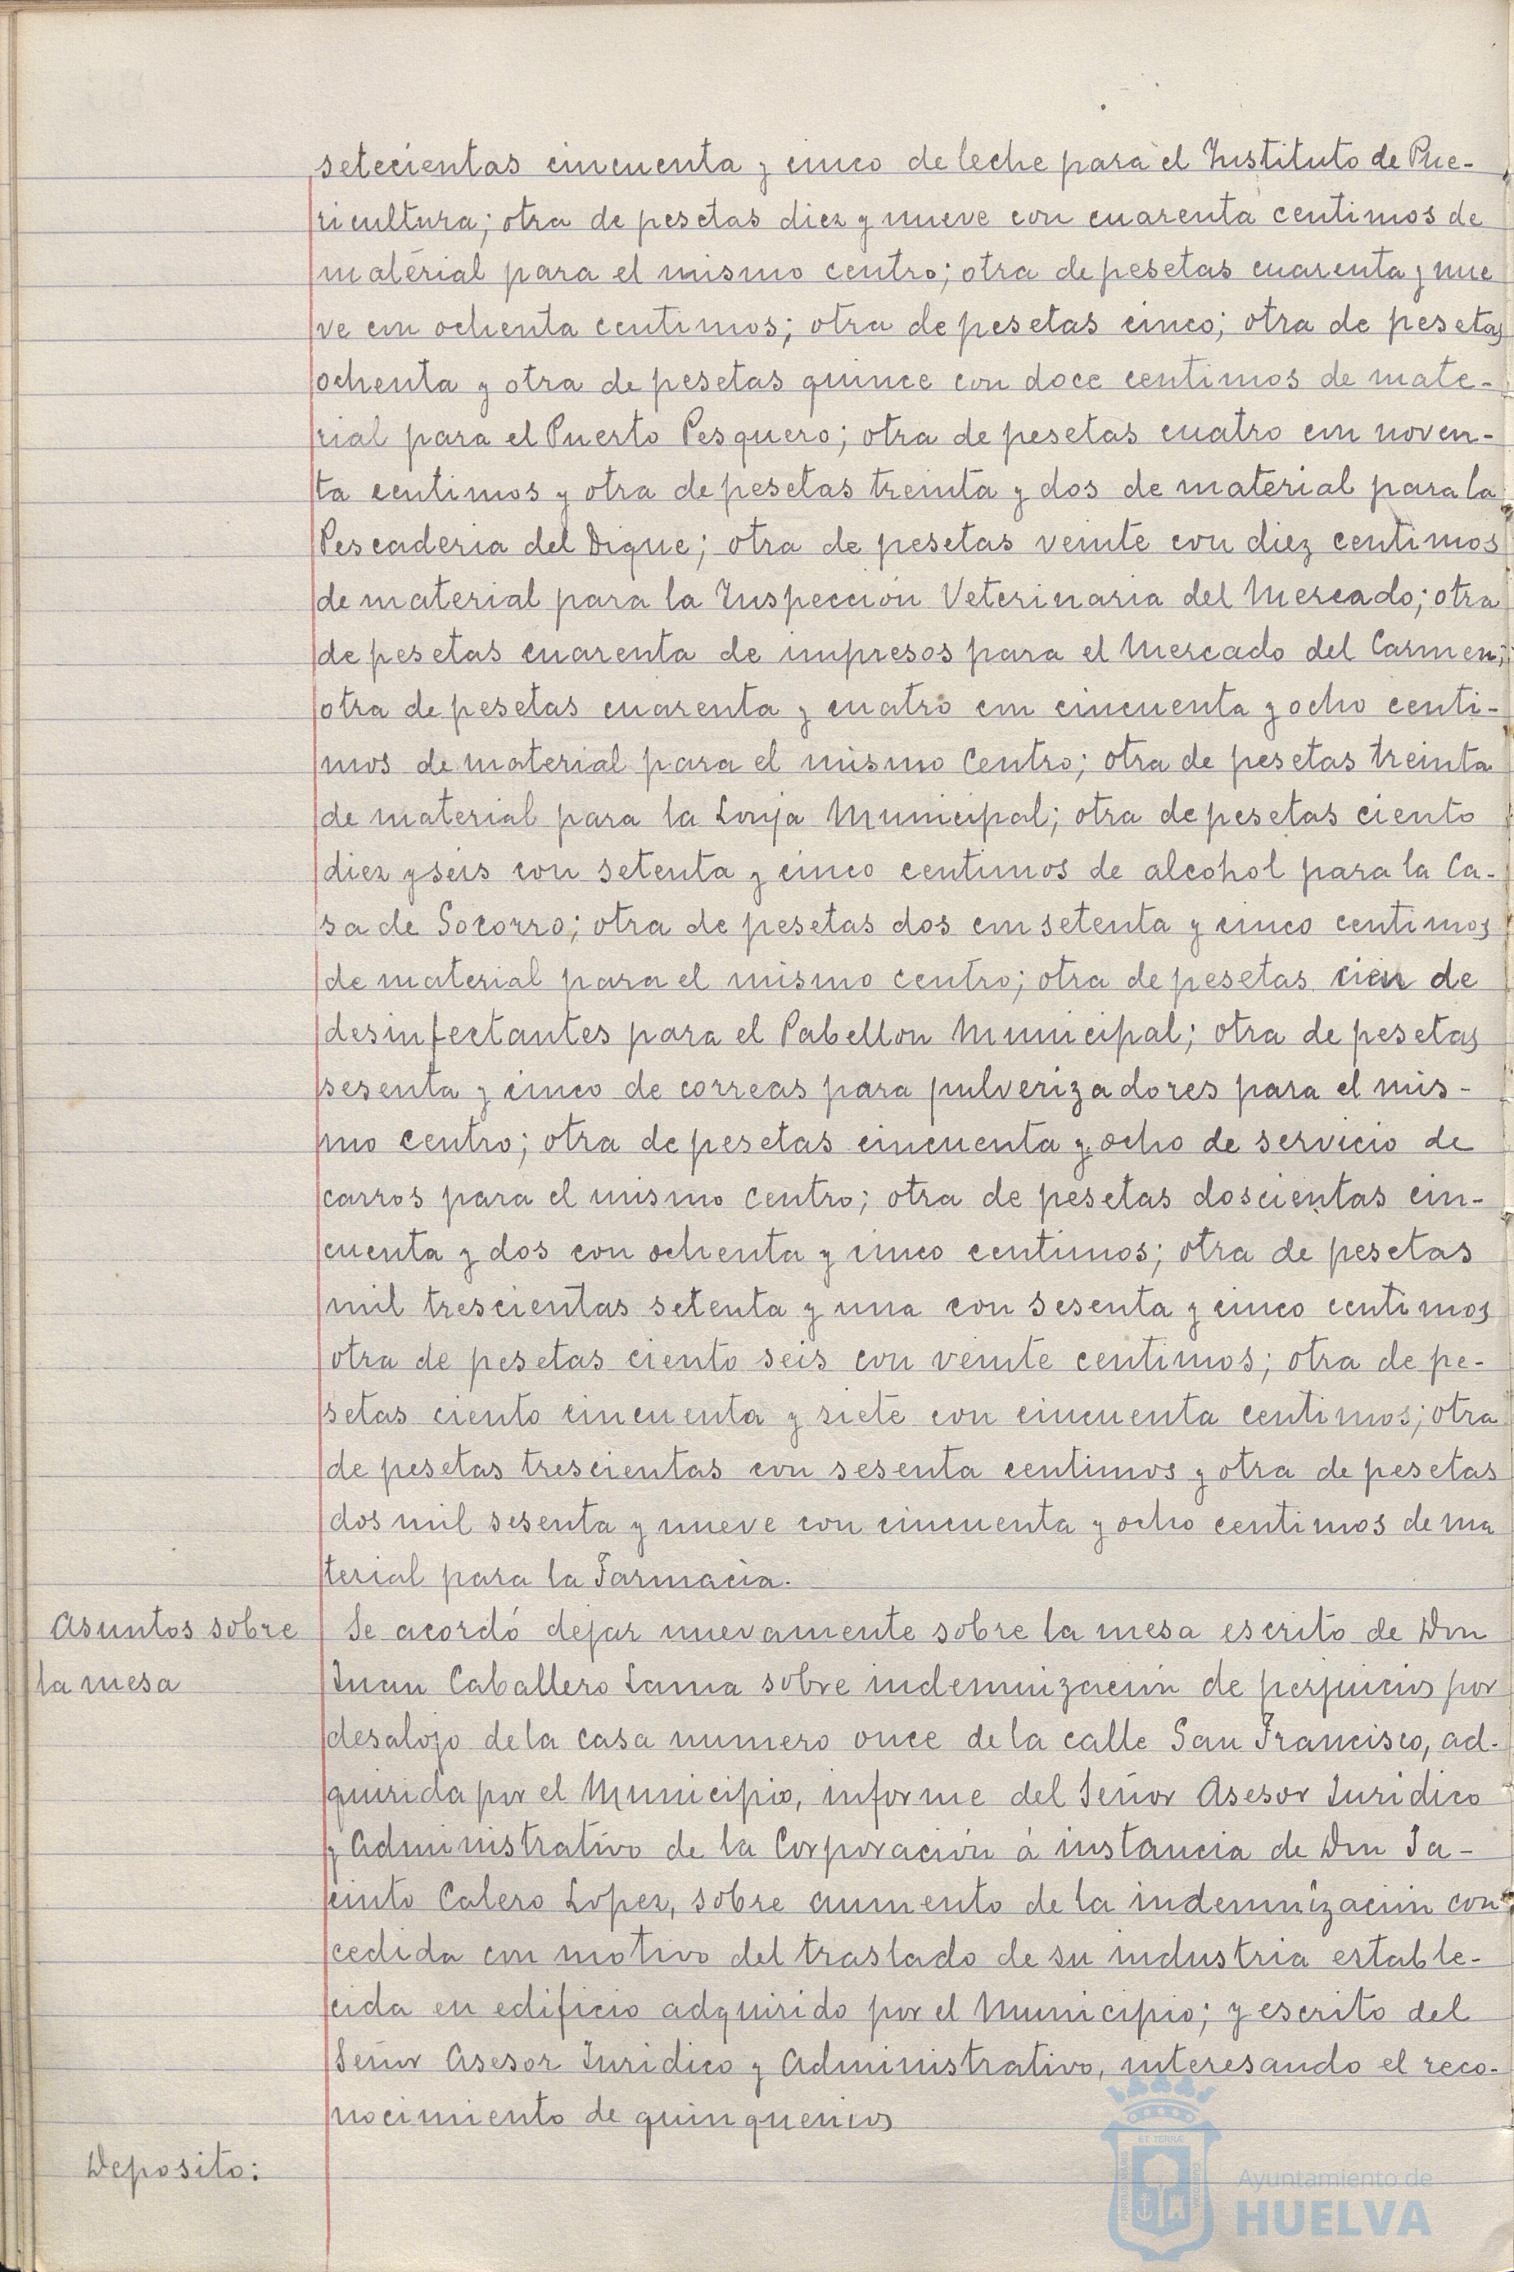 setecientas cincuenta y cinco de leche para el Instituto de Pue-
ricultura; otra de pesetas diez y nueve con cuarenta centimos de
material para el mismo centro; otra de pesetas cuarenta y nue
ve con ochenta centimos; otra de pesetas cinco; otra de pesetas
ochenta y otra de pesetas quince con doce centimos de mate-
rial para el Puerto Pesquero; otra de pesetas cuatro con noven-
ta centimos y otra de pesetas treinta y dos de material para la
Pescaderia del Dique; otra de pesetas veinte con diez centimos
de material para la Inspección Veterinaria del Mercado; otra
de pesetas cuarenta de impresos para el Mercado del Carmen;
otra de pesetas cuarenta y cuatro con cincuenta y ocho centi-
mos de material para el mismo Centro; otra de pesetas treinta
de material para la Lonja Municipal; otra de pesetas ciento
diez y seis con setenta y cinco centimos de alcohol para la Ca-
sa de Socorro; otra de pesetas dos con setenta y cinco centimos
de material para el mismo centro; otra de pesetas cien de
desinfectantes para el Pabellon Municipal; otra de pesetas
sesenta y cinco de correas para pulverizadores para el mis-
mo centro; otra de pesetas cincuenta y ocho de servicio de
carros para el mismo centro; otra de pesetas doscientas cin-
cuenta y dos con ochenta y cinco centimos; otra de pesetas
mil trescientas setenta y una con sesenta y cinco centimos
otra de pesetas ciento seis con veinte centimos; otra de pe-
setas ciento cincuenta y siete con cincuenta centimos; otra
de pesetas trescientas con sesenta centimos y otra de pesetas
dos mil sesenta y nueve con cincuenta y ocho centimos de ma
terial para la Farmacia.
Asuntos sobre
la mesa
Se acordó dejar nuevamente sobre la mesa escrito de Don
Juan Caballero Lama sobre indemnización de perjuicios por
desalojo de la casa numero once de la calle San Francisco, ad-
quirida por el Municipio, informe del Señor Asesor Juridico
y Administrativo de la Corporación á instancia de Don Ja-
cinto Calero Lopez, sobre aumento de la indemnización con
cedida con motivo del traslado de su industria estable-
cida en edificio adquirido por el Municipio; y escrito del
Señor Asesor Juridico y Administrativo, interesando el reco-
nocimiento de quinquenios
Deposito:
Ayuntamiento de
HUELVA